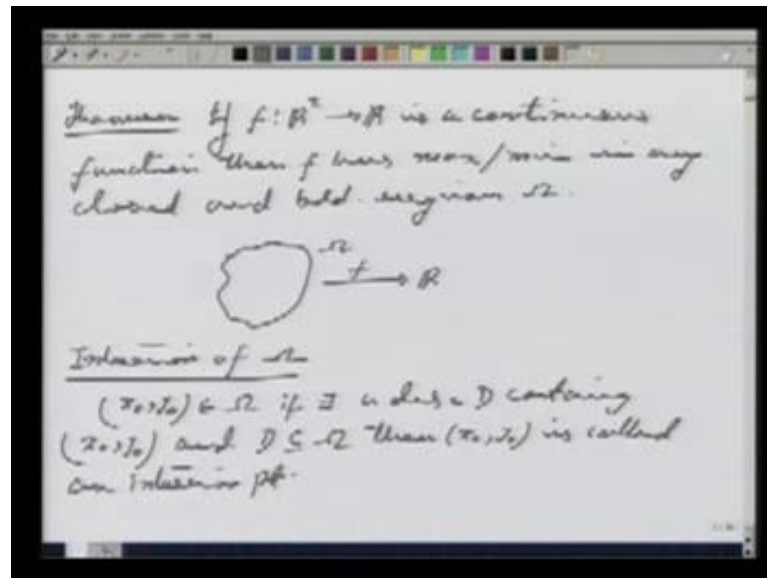 Theorem If f: ℝ² → ℝ is a continuous
function then f has max/min in any
closed and bdd. region Ω.
Ω
f
ℝ
Interior of Ω
(x₀,y₀) ∈ Ω if ∃ a disc D containing
(x₀,y₀) and D ⊆ Ω then (x₀,y₀) is called
an interior pt.